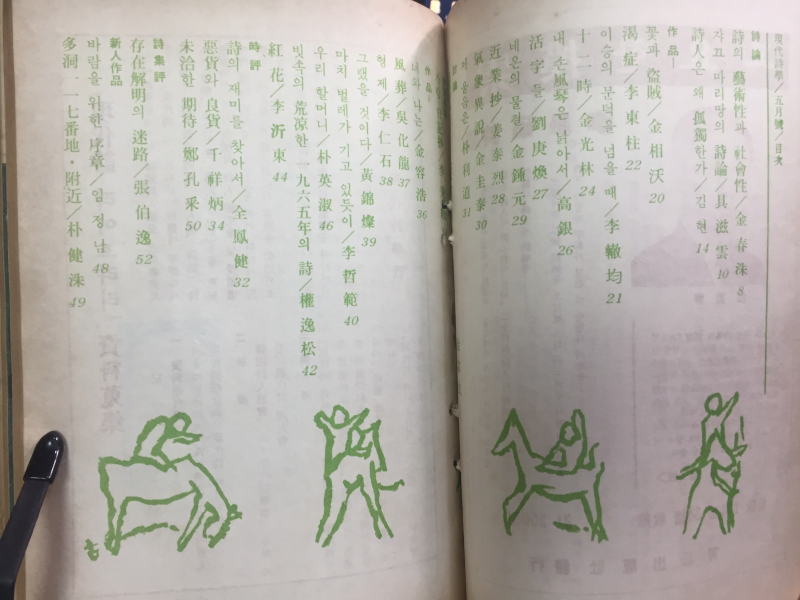 現代詩學／五月號／目次
詩論
詩의 藝術性과 社會性／金春洙 8
자끄 마리땅의 詩論／具滋雲 10
詩人은 왜 孤獨한가／김현 14
作品—
꽃과 盜賊／金相沃 20
渴症／李東柱 22
이승의 문턱을 넘을 때／李轍均 21
十二時／金光林 24
내 손風琴은 낡아서／高銀 26
活字들／劉庚煥 27
네온의 물결／金鍾元 29
近業抄／姜泰烈 28
氣象異說／金圭泰 30
朴利道 31
作品—
너와 나는／金容浩 36
風葬／吳化龍 37
형제／李仁石 38
그랬을 것이다／黃錦燦 39
마치 벌레가 기고 있듯이／李哲範 40
우리 할머니／朴英淑 46
빗속의 荒凉한 一九六五年의 詩／權逸松 42
紅花／李沂東 44
時評
詩의 재미를 찾아서／全鳳健 32
惡貨와 良貨／千祥炳 34
未洽한 期待／鄭孔采 50
詩集評
存在解明의 迷路／張伯逸 52
新人作品
바람을 위한 序章／임정남 48
多洞一一七番地・附近／朴健洙 49